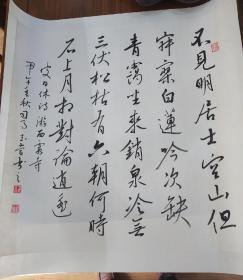 不見明居士空山但
寂寥白蓮吟次缺
青靄坐来銷泉冷無
三伏松枯有六朝何時
石上月相對論逍遥
皮日休诗游栖霞寺
甲午年秋 书之